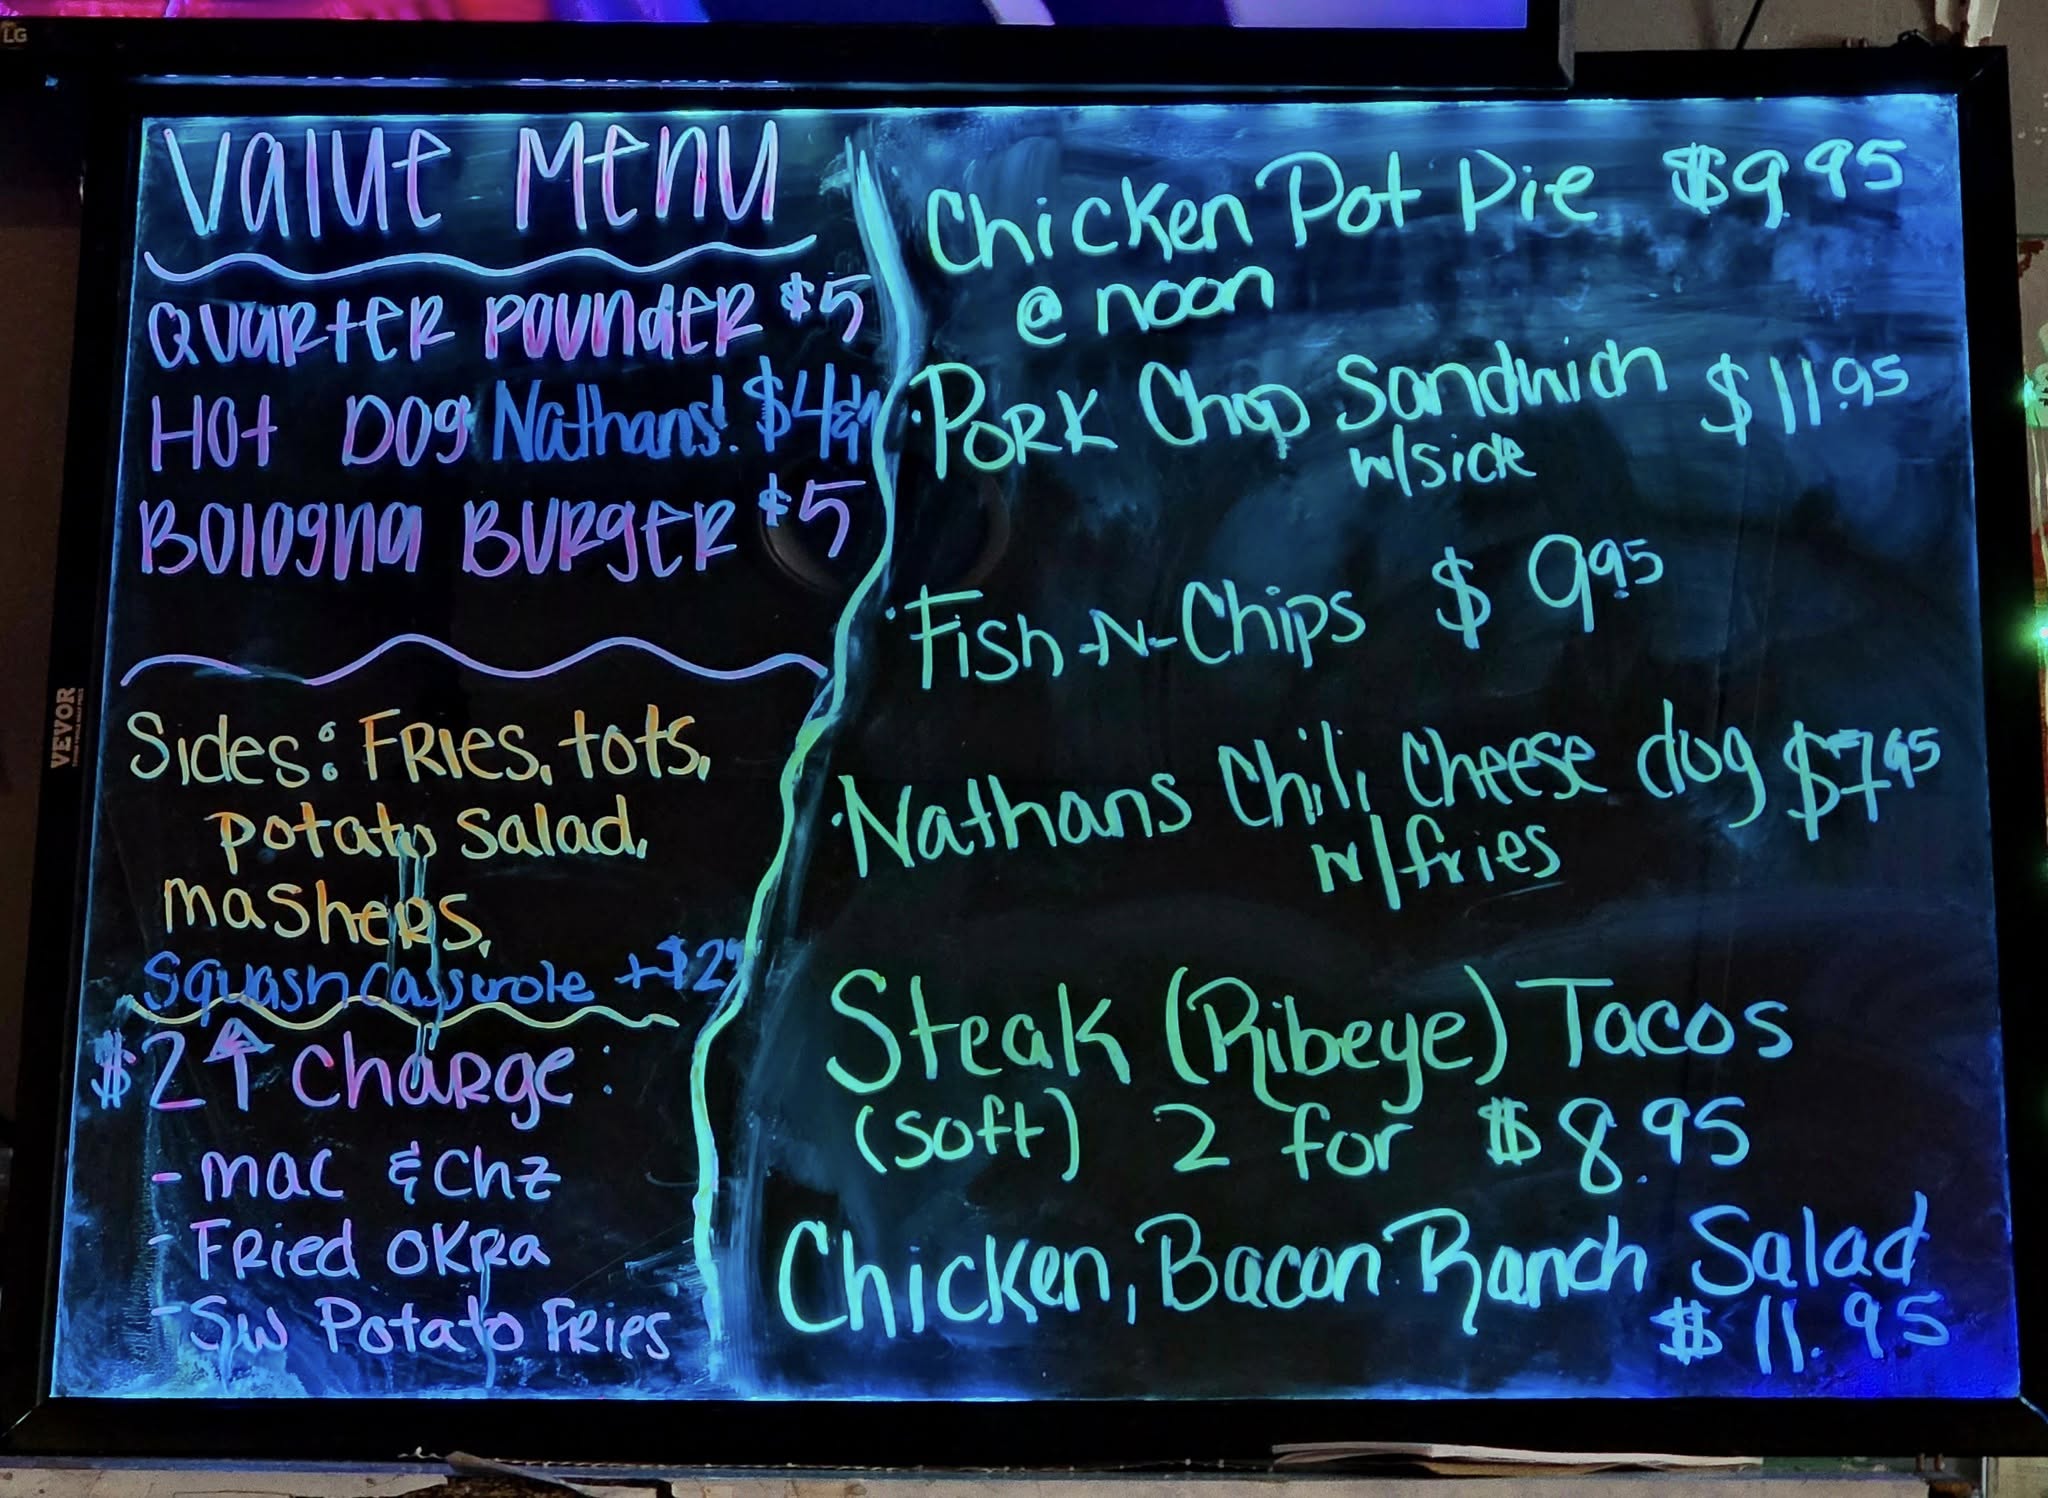 LG
Value Menu
Quarter Pounder $5
Hot Dog Nathans! $4
Bologna Burger $5
Sides: Fries, tots,
potato salad,
mashers,
Squash Casserole +$2
$2 ↑ charge:
- mac & chz
- Fried okra
- Sw Potato Fries
Chicken Pot Pie $9.95
@ noon
·Pork Chop Sandwich $11.95
w/side
·Fish-N-Chips $9.95
·Nathans Chili, Cheese dog $7.95
w/fries
Steak (Ribeye) Tacos
(soft) 2 for $8.95
Chicken, Bacon Ranch Salad
$11.95
VEVOR